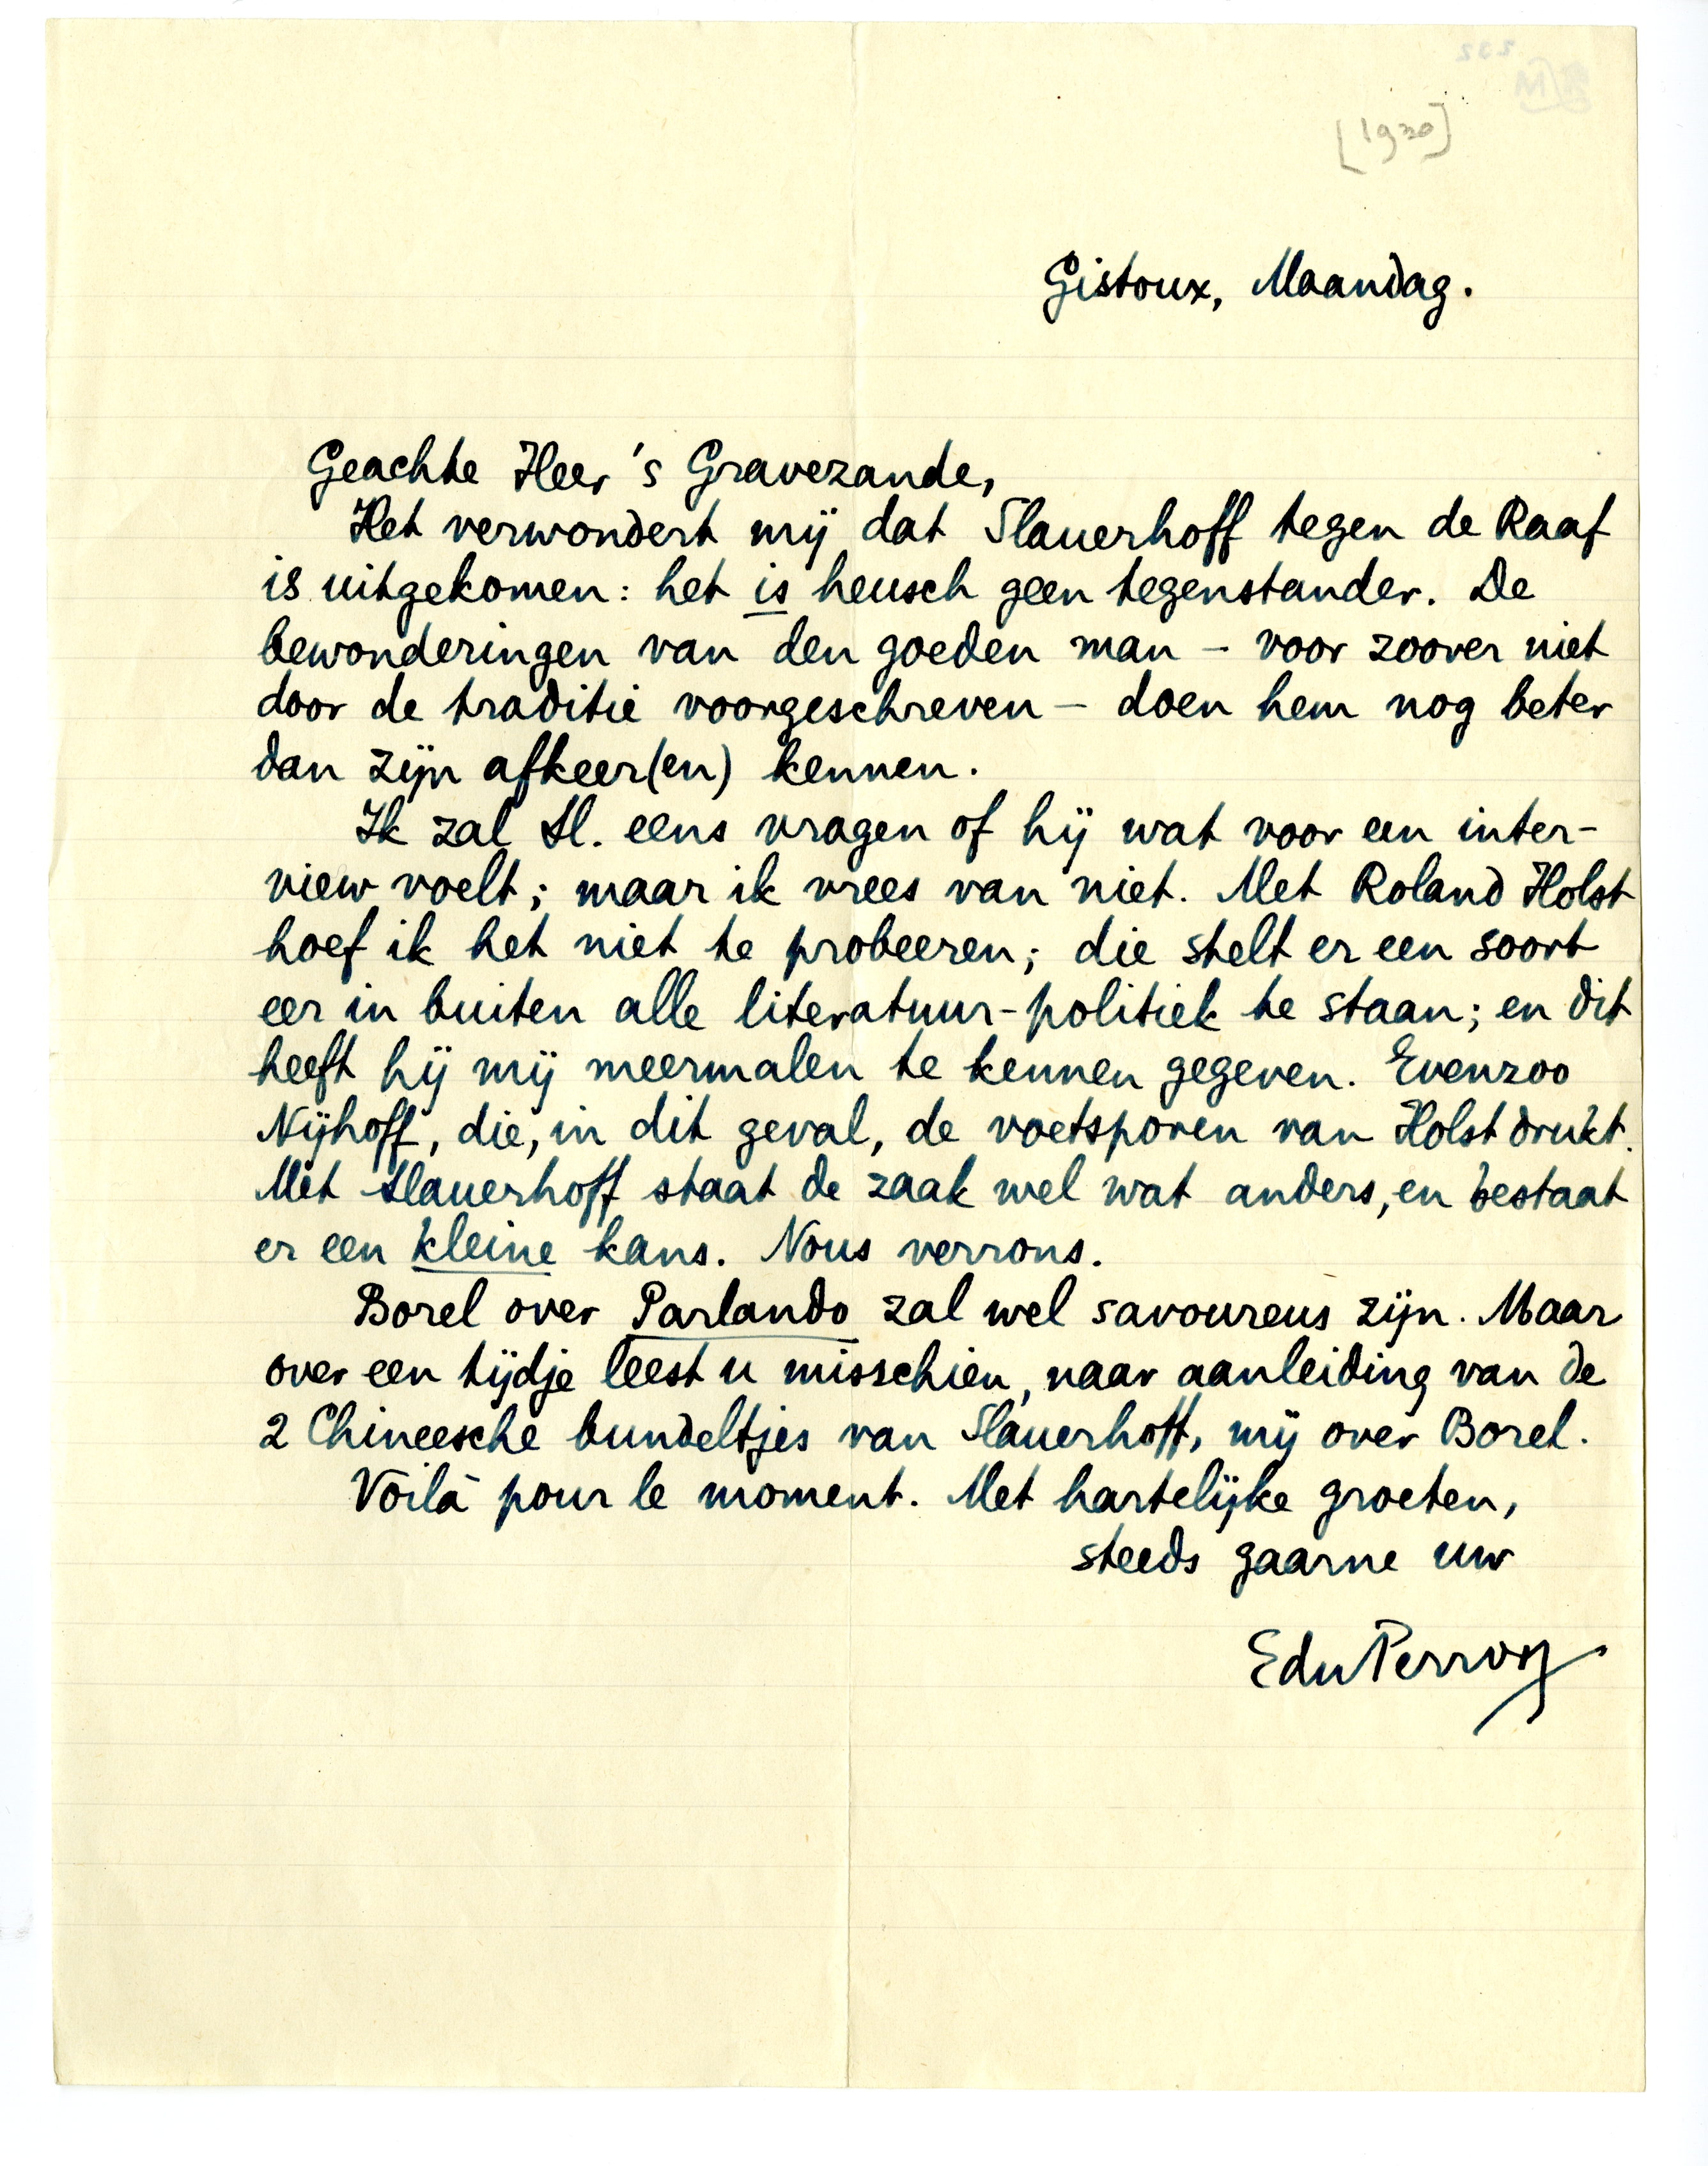 [1930]
Gistoux, Maandag.
Geachte Heer 's Gravezande,
Het verwondert mij dat Slauerhoff tegen de Raaf
is uitgekomen: het is heusch geen tegenstander. De
bewonderingen van den goeden man – voor zoover niet
door de traditie voorgeschreven – doen hem nog beter
dan zijn afkeer(en) kennen.
Ik zal Sl. eens vragen of hij wat voor een inter-
view voelt; maar ik vrees van niet. Met Roland Holst
hoef ik het niet te probeeren; die stelt er een soort
eer in buiten alle literatuur-politiek te staan; en dit
heeft hij mij meermalen te kennen gegeven. Evenzoo
Nijhoff, die, in dit geval, de voetsporen van Holst drukt.
Met Slauerhoff staat de zaak wel wat anders, en bestaat
er een kleine kans. Nous verrons.
Borel over Parlando zal wel savoureus zijn. Maar
over een tijdje leest u misschien, naar aanleiding van de
2 Chineesche bundeltjes van Slauerhoff, mij over Borel.
Voilà pour le moment. Met hartelijke groeten,
steeds gaarne uw
EduPerron